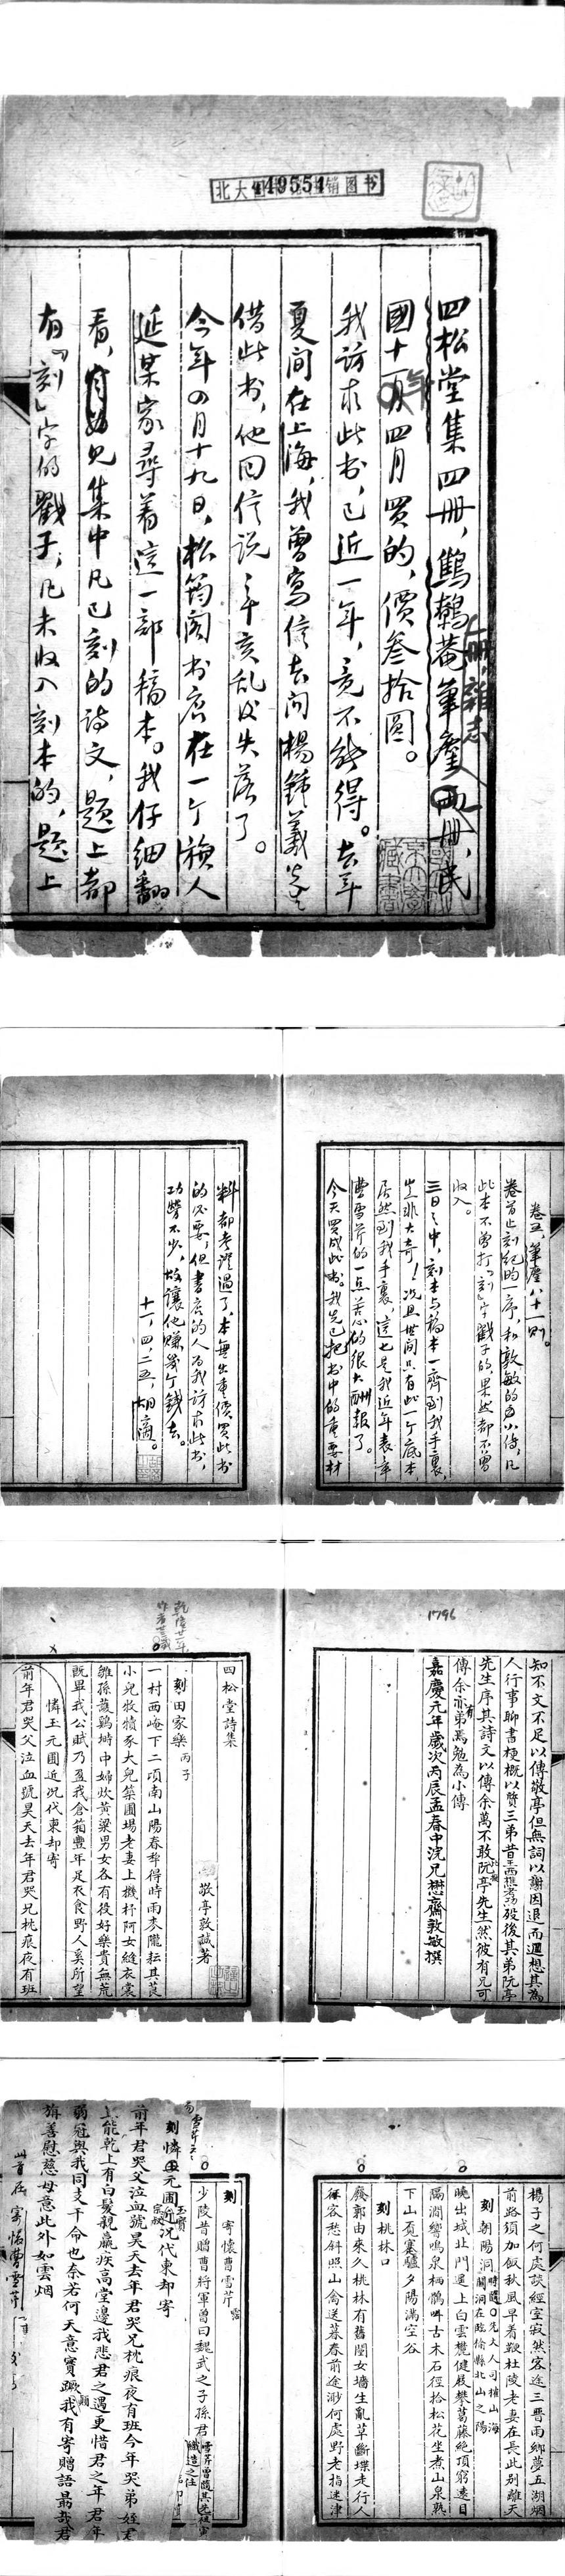 北大 49551 销图书
四松堂集四冊，鷦鷯菴筆麈一冊，雜志
一冊，民
國十一年四月買的，價叁拾圓。
我訪求此书，已近一年，竟不能得。去年
夏間在上海，我曾寫信去问楊鍾羲先生
借此书，他回信说，辛亥乱後失落了。
今年四月十九日，松筠阁书店在一个旗人
延某家尋着這一部稿本。我仔细翻
看，見集中凡已刻的诗文，题上都
有「刻」字的戳子；凡未收入刻本的，题上
卷五，筆麈八十一則。
卷首止刻紀昀一序，和敦敏的小传，凡
此本不曾打「刻」字戳子的，果然都不曾
收入。
三日之中，刻本与稿本一齊到我手裏，
豈非大奇！况且世间只有此一个底本，
居然到我手裏，這也是我近年表章
曹雪芹的一点苦心的很大酬報了。
今天買成此书。我先已把书中的重要材
料都考證過了，本無出重價買此书
的必要，但書店的人为我訪求此书，
功勞不少，故讓他賺幾个錢去。
十一，四，二五，胡適。
1796
知不文不足以傳敬亭但無詞以謝因退而迴想其為
人行事聊書梗概以贊三弟昔王西樵考功殁後其弟阮亭
先生序其詩文以傳余萬不敢阮亭先生然彼有兄可
傳余亦有弟焉勉為小傳
嘉慶元年歲次丙辰孟春中浣兄懋齋敦敏撰
乾隆廿一年
作者廿三歲
四松堂詩集
敬亭敦誠著
刻 田家樂 丙子
一村西崦下二頃南山陽春犂得時雨麥隴耘其莨
小兒牧犢豕大兒築圃場老妻上機杼阿女縫衣裳
雛孫護鷄塒中婦炊黃粱男女各有役好樂貴無荒
既畢我公賦乃盈我倉箱豐年足衣食野人奚所望
憐王元圃近况代柬却寄
前年君哭父泣血號昊天去年君哭兄枕痕夜有班
楊子之何處談經室寂然客途三晋雨鄉夢五湖烟
前路須加飯秋風早着鞭杜陵老妻在長此别離天
刻 朝陽洞 時隨先大人司榷山海關洞在臨榆縣北山之陽
曉出城北門遥上白雲麓健屐攀葛藤絶頂窮遠目
隔澗響鳴泉栖鶻呼古木石徑拾松花坐煮山泉熟
下山覓蹇驢夕陽滿空谷
刻 桃林口
殘郭由來久桃林有舊闉女墻生亂草斷堞走行人
徠客愁斜照山禽送暮春前途渺何處野老指迷津
刻 寄懷曹雪芹 霑
少陵昔贈曹將軍曾曰魏武之子孫君
雪芹曾隨其先祖寅織造之任
刻 憐王元圃近况代柬却寄 宗室
前年君哭父泣血號昊天去年君哭兄枕痕夜有班今年哭弟姪君
上能乾上有白髮親羸疾高堂邊我悲君之遇更惜君之年君年
弱冠與我同支干命也奈若何天意實蹶顛我有寄贈語勗哉君
旃善慰慈母意此外如雲烟